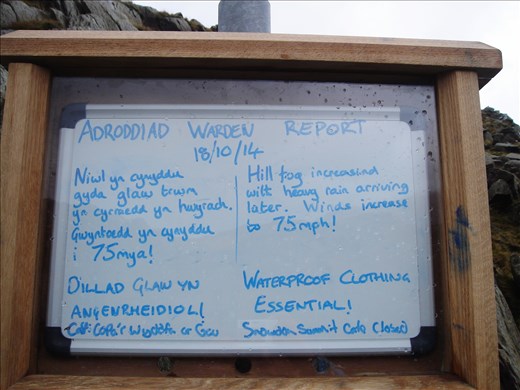 ADRODDIAD WARDEN REPORT
18/10/14
Niwl yn cynyddu
gyda glaw trwm
yn cyrraedd yn hwyrach.
Gwyntoedd yn cynyddu
i 75mya!
Hill fog increasing
with heavy rain arriving
later. Winds increase
to 75mph!
DILLAD GLAW YN
ANGENRHEIDIOL!
Caffi Copa'r Wyddfa ar Gau
WATERPROOF CLOTHING
ESSENTIAL!
Snowdon Summit Cafe Closed